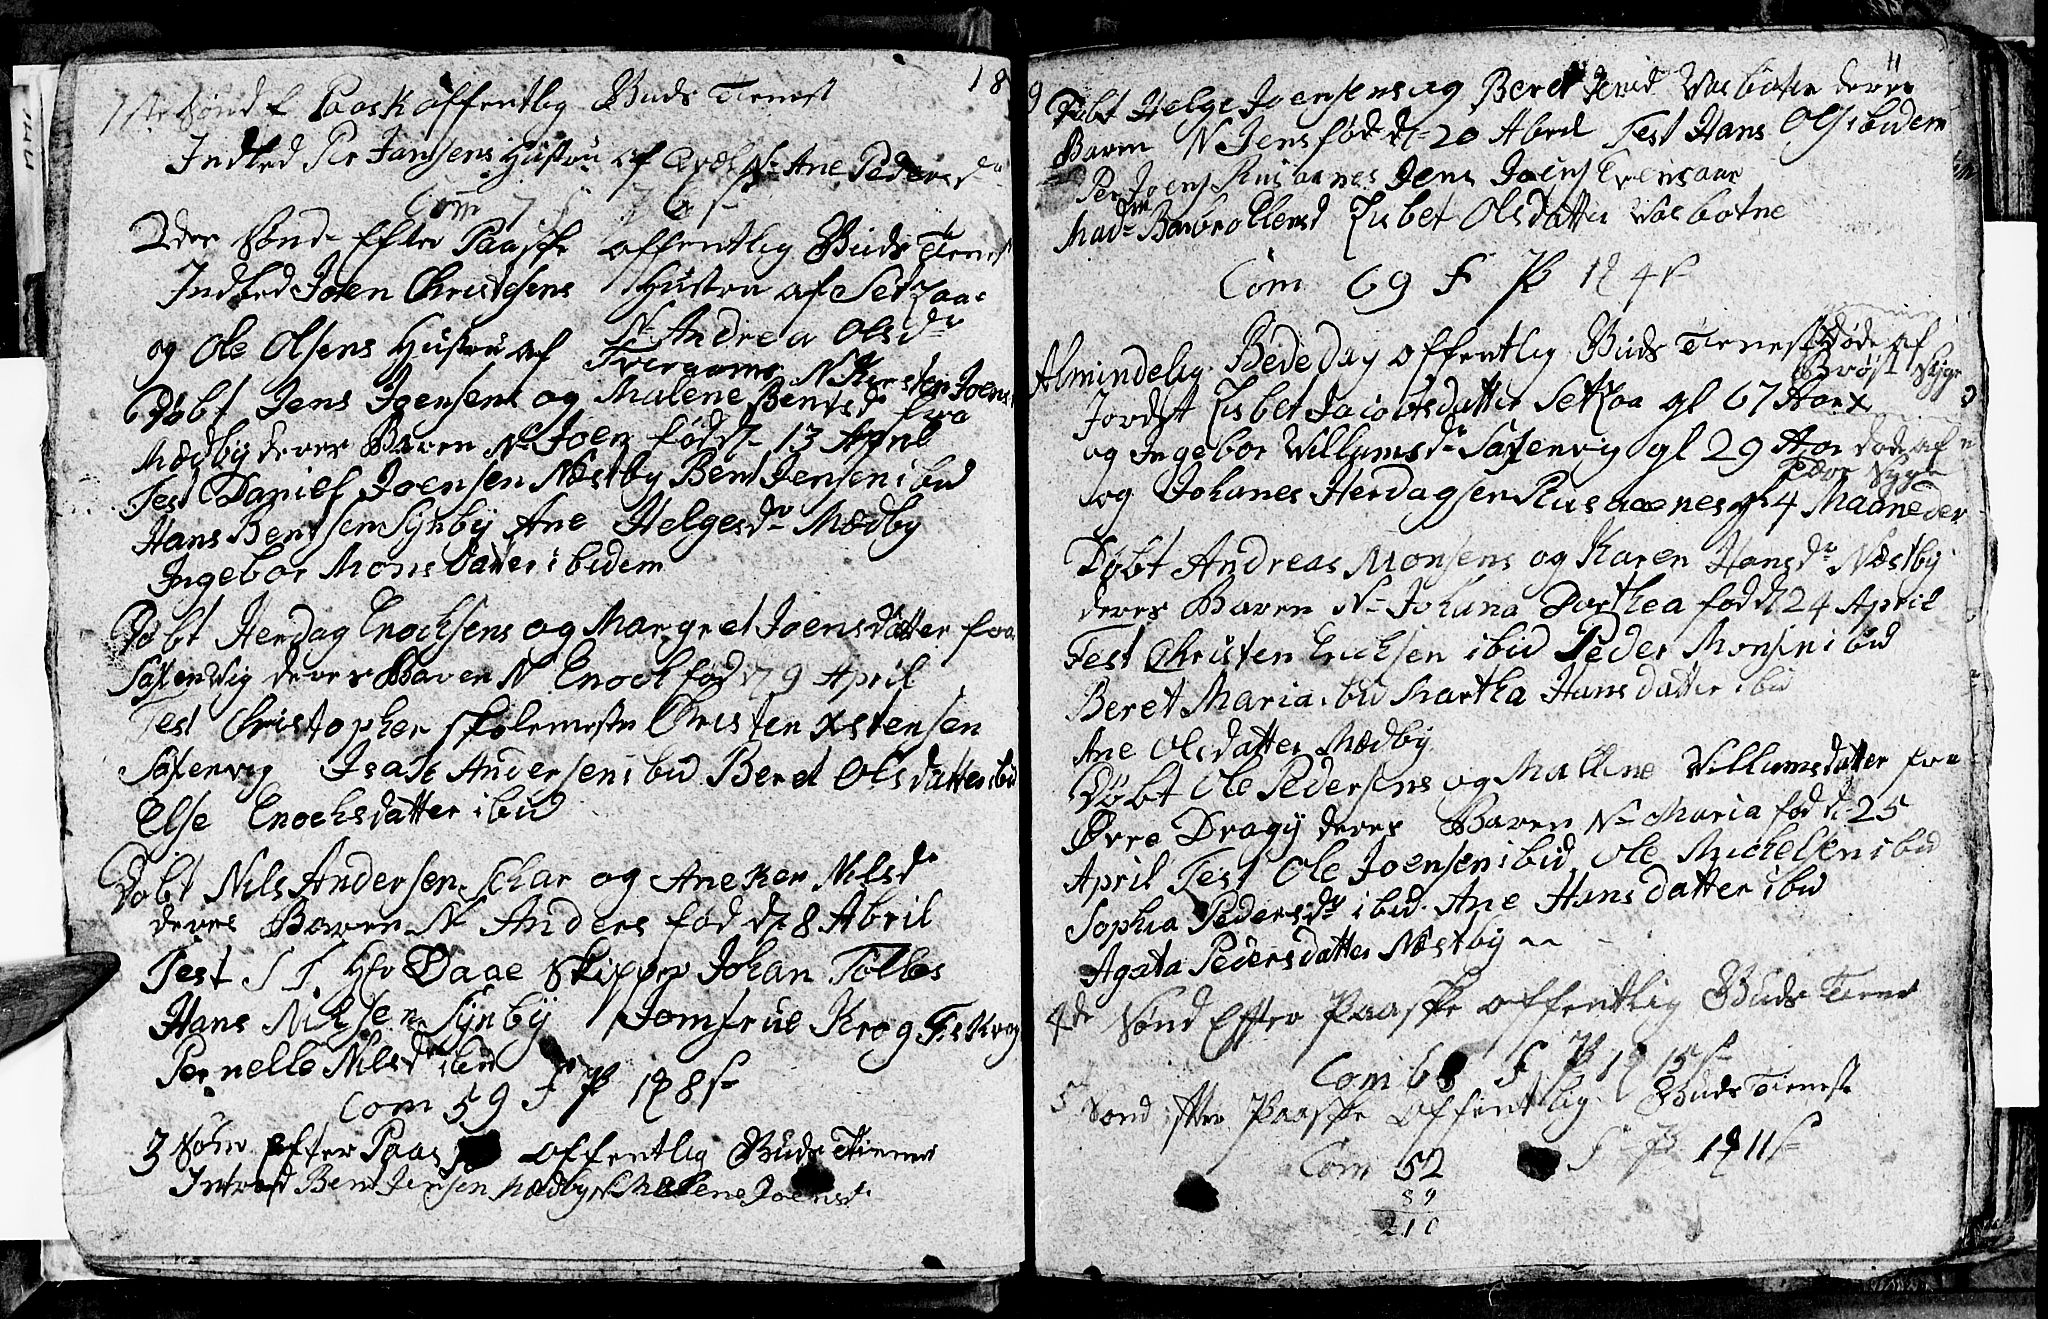 18
1ste Sønd E Paask offentlig Guds Tienest
Indled Per Jansens Hustru af N Ane Pedersd
Com
2der Sønd Efter Paaske offentlig Guds Tienest
Indled Joen Christesens Hustru af Setzaa
N Andrea Olsdr
og Ole Olsens Hustru af N Kirsten Joens
Døbt Jens Joensens og Malene Bentsdr fra
Mædby deres Baren N Joen fød d 13 April
Test Daniel Joensen Næstby Bent Jensen ibid
Hans Bentsen Synby Ane Helgesdr Mædby
Ingebor Monsdatter ibidem
Døbt Herdag Enochsens og Margret Joensdatter fra
Saxenvig deres Baren N Enoch fød d 9 April
Test Christopher skolemester Christen Xstensen
Saxenvig Isak Andersen ibid Beret Olsdatter ibid
Else Enochsdatter ibid
Døbt Nils Andersen Schar og Aneken Nilsd
deres Baren N Anders fød d 8 Abril
Test S T Hr Daae Skipper Johan Tolles
Hans Nilsen Synby Jomfrue Krog Krog
Pernelle Nilsdr ibid
Com 59 F P 1 8 s
3 Sønd efter Paaske offentlig Guds Tienest
Introd Bent Jensen Mædby N Malene Joensd
11
Døbt Helge Joensens og Beret Vasbotn deres
Baren N Jens fød d 20 Abril Test Hans Ols ibidem
Per Joens Rusaanes Jens Joens Evensaar
Mad Barbro Ellensd Lisbet Olsdatter Vasbotne
Com 69 F P 1 4 s
Almindelig Bededag offentlig Guds Tienest Døde af
Bryst Syge
Jordfst Lisbet Jacobsdatter Setzaa gl 67 Aar
og Ingebor Villumsdr Saxenvig gl 29 Aar død af
Syge
og Johanes Herdagsen Rusaaenes gl 4 Maaneder
Døbt Andreas Monsens og Karen Hansdr Næstby
deres Baren N Johana Dorthea fød d 24 April
Test Christen Erichsen ibid Peder Monsen ibid
Beret Maria ibid Martha Hansdatter ibid
Ane Olsdatter Mædby
Døbt Ole Pedersens og Mallene Villumsdatter fra
Øvre Dragy deres Baren N Maria fød d 25
April Test Ole Joensen ibid Ole Michelsen ibid
Sophia Pedersdr ibid Ane Hansdatter ibid
Agata Pedersdatter Næstby
4de Sønd Efter Paaske offentlig Guds Tienest
Com 6 F P 1 15 s
5 Sønd Efter Paaske offentlig Guds Tieneste
Com 52 F P 1 11 s
89
210